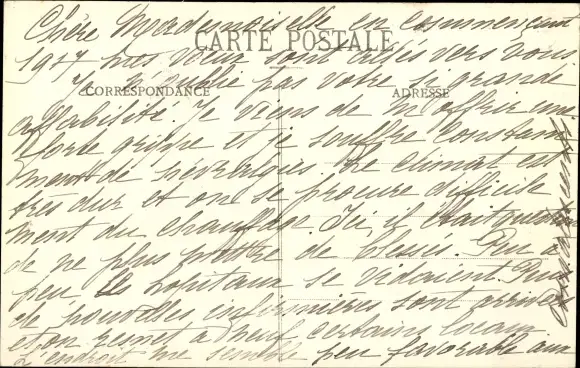 Chère Mademoiselle en commençant
CARTE POSTALE
1917 mes vœux sont allés vers vous
Je n'oublie pas votre si grande
CORRESPONDANCE
ADRESSE
affabilité. Je viens de m'offrir une
forte grippe et je souffre constam
ment de névralgies. Le climat est
très dur et on se procure difficile
ment du chauffage. Ici, il était question
de ne plus prendre de blessés. Peu
peu les hôpitaux se vidaient. Puis
de nouvelles infirmières sont arrivées
et on remet à neuf certains locaux
L'endroit me semble peu favorable aux